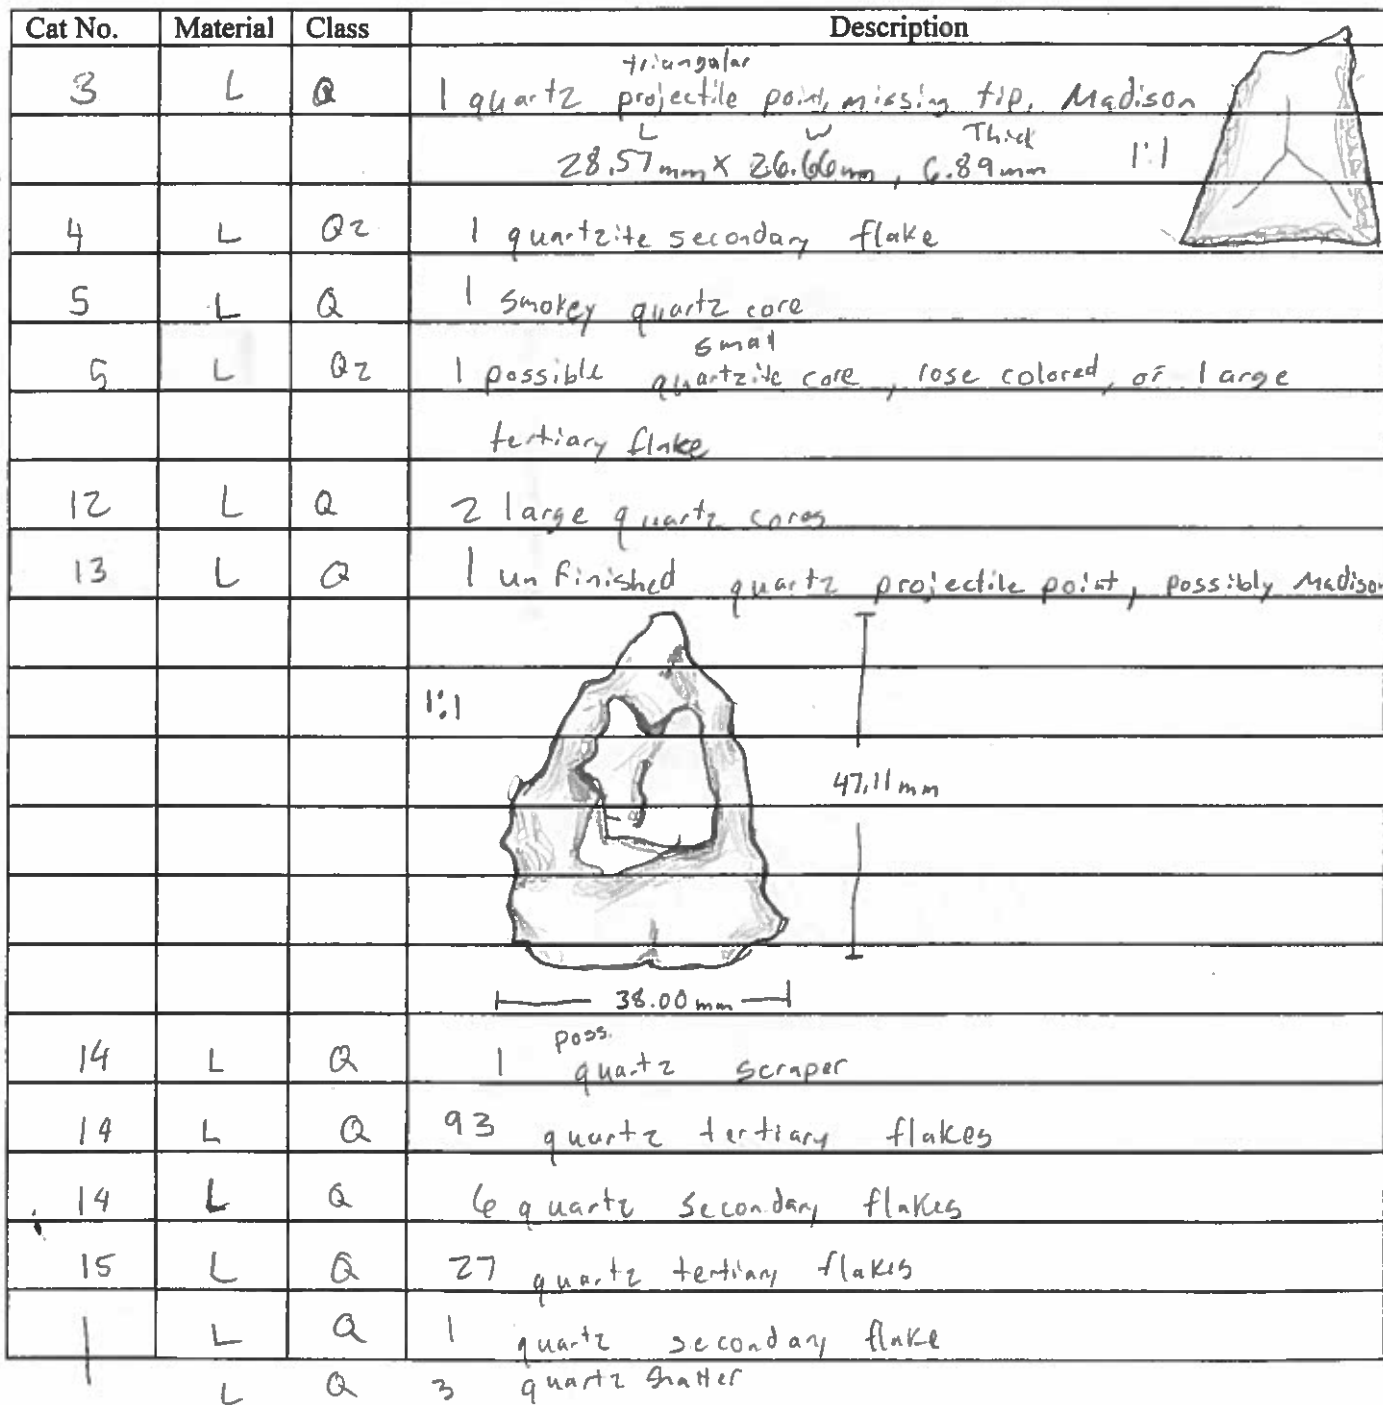 Cat No. Material Class Description
triangular
3 L Q 1 quartz projectile point, missing tip, Madison
L W Thick
28.57mm x 26.66mm, 6.89mm 1:1
4 L Qz 1 quartzite secondary flake
5 L Q 1 smokey quartz core
small
5 L Qz 1 possible quartzite core, rose colored, or large
tertiary flake
12 L Q 2 large quartz cores
13 L Q 1 unfinished quartz projectile point, possibly Madison
1:1
47.11mm
38.00mm
poss.
14 L Q 1 quartz scraper
14 L Q 93 quartz tertiary flakes
14 L Q 6 quartz secondary flakes
15 L Q 27 quartz tertiary flakes
| L Q 1 quartz secondary flake
L Q 3 quartz shatter